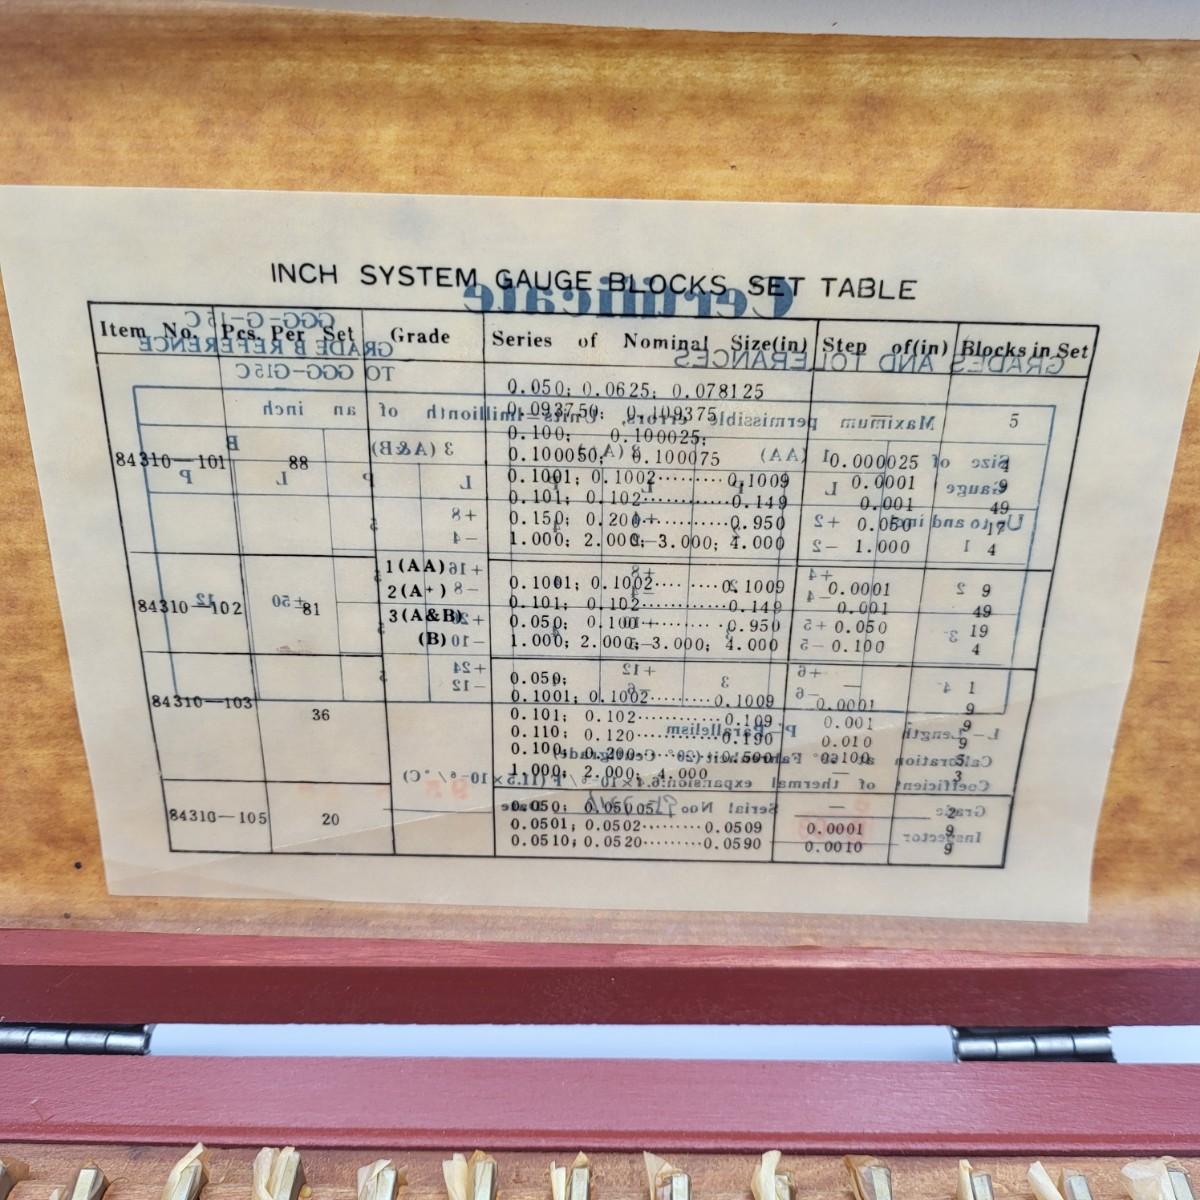 INCH SYSTEM GAUGE BLOCKS SET TABLE
Certificate
Item No. Pcs Per Set Grade Series of Nominal Size(in) Step of(in) Blocks in Set
GGG-G-15 C
GRADE B REFERENCE
TO GGG-G15C
GRADES AND TOLERANCES
0.050; 0.0625; 0.078125
0.093750; 0.109375 5
Maximum permissible errors, Units-millionth of an inch
0.100; 0.100025;
84310—101 88 0.100050; 0.100075 0.000025 4
0.1001; 0.1002········0.1009 0.0001 9
0.101; 0.102···········0.149 0.001 49
0.150; 0.200···········0.950 0.050 17
1.000; 2.000;—3.000; 4.000 1.000 4
Size of Gauge
Up to and incl
1(AA)
2(A+)
3(A&B)
(B)
84310—102 81 0.1001; 0.1002········0.1009 0.0001 9
0.101; 0.102···········0.149 0.001 49
0.050; 0.100···········0.950 0.050 19
1.000; 2.000;—3.000; 4.000 0.100 4
84310—103 36 0.050; — 1
0.1001; 0.1002········0.1009 0.0001 9
0.101; 0.102··········0.109 0.001 9
0.110; 0.120··········0.190 0.010 9
0.100; 0.200··········0.500 0.100 5
1.000; 2.000; 4.000 — 3
L-Length P-Parallelism
Calibration at 68° Fahrenheit (20° Centigrade)
Coefficient of thermal expansion:6.4×10⁻⁶/°F(11.5×10⁻⁶/°C)
84310—105 20 0.050; — 2
0.0501; 0.0502········0.0509 0.0001 9
0.0510; 0.0520·········0.0590 0.0010 9
Grade Serial No Date
Inspector